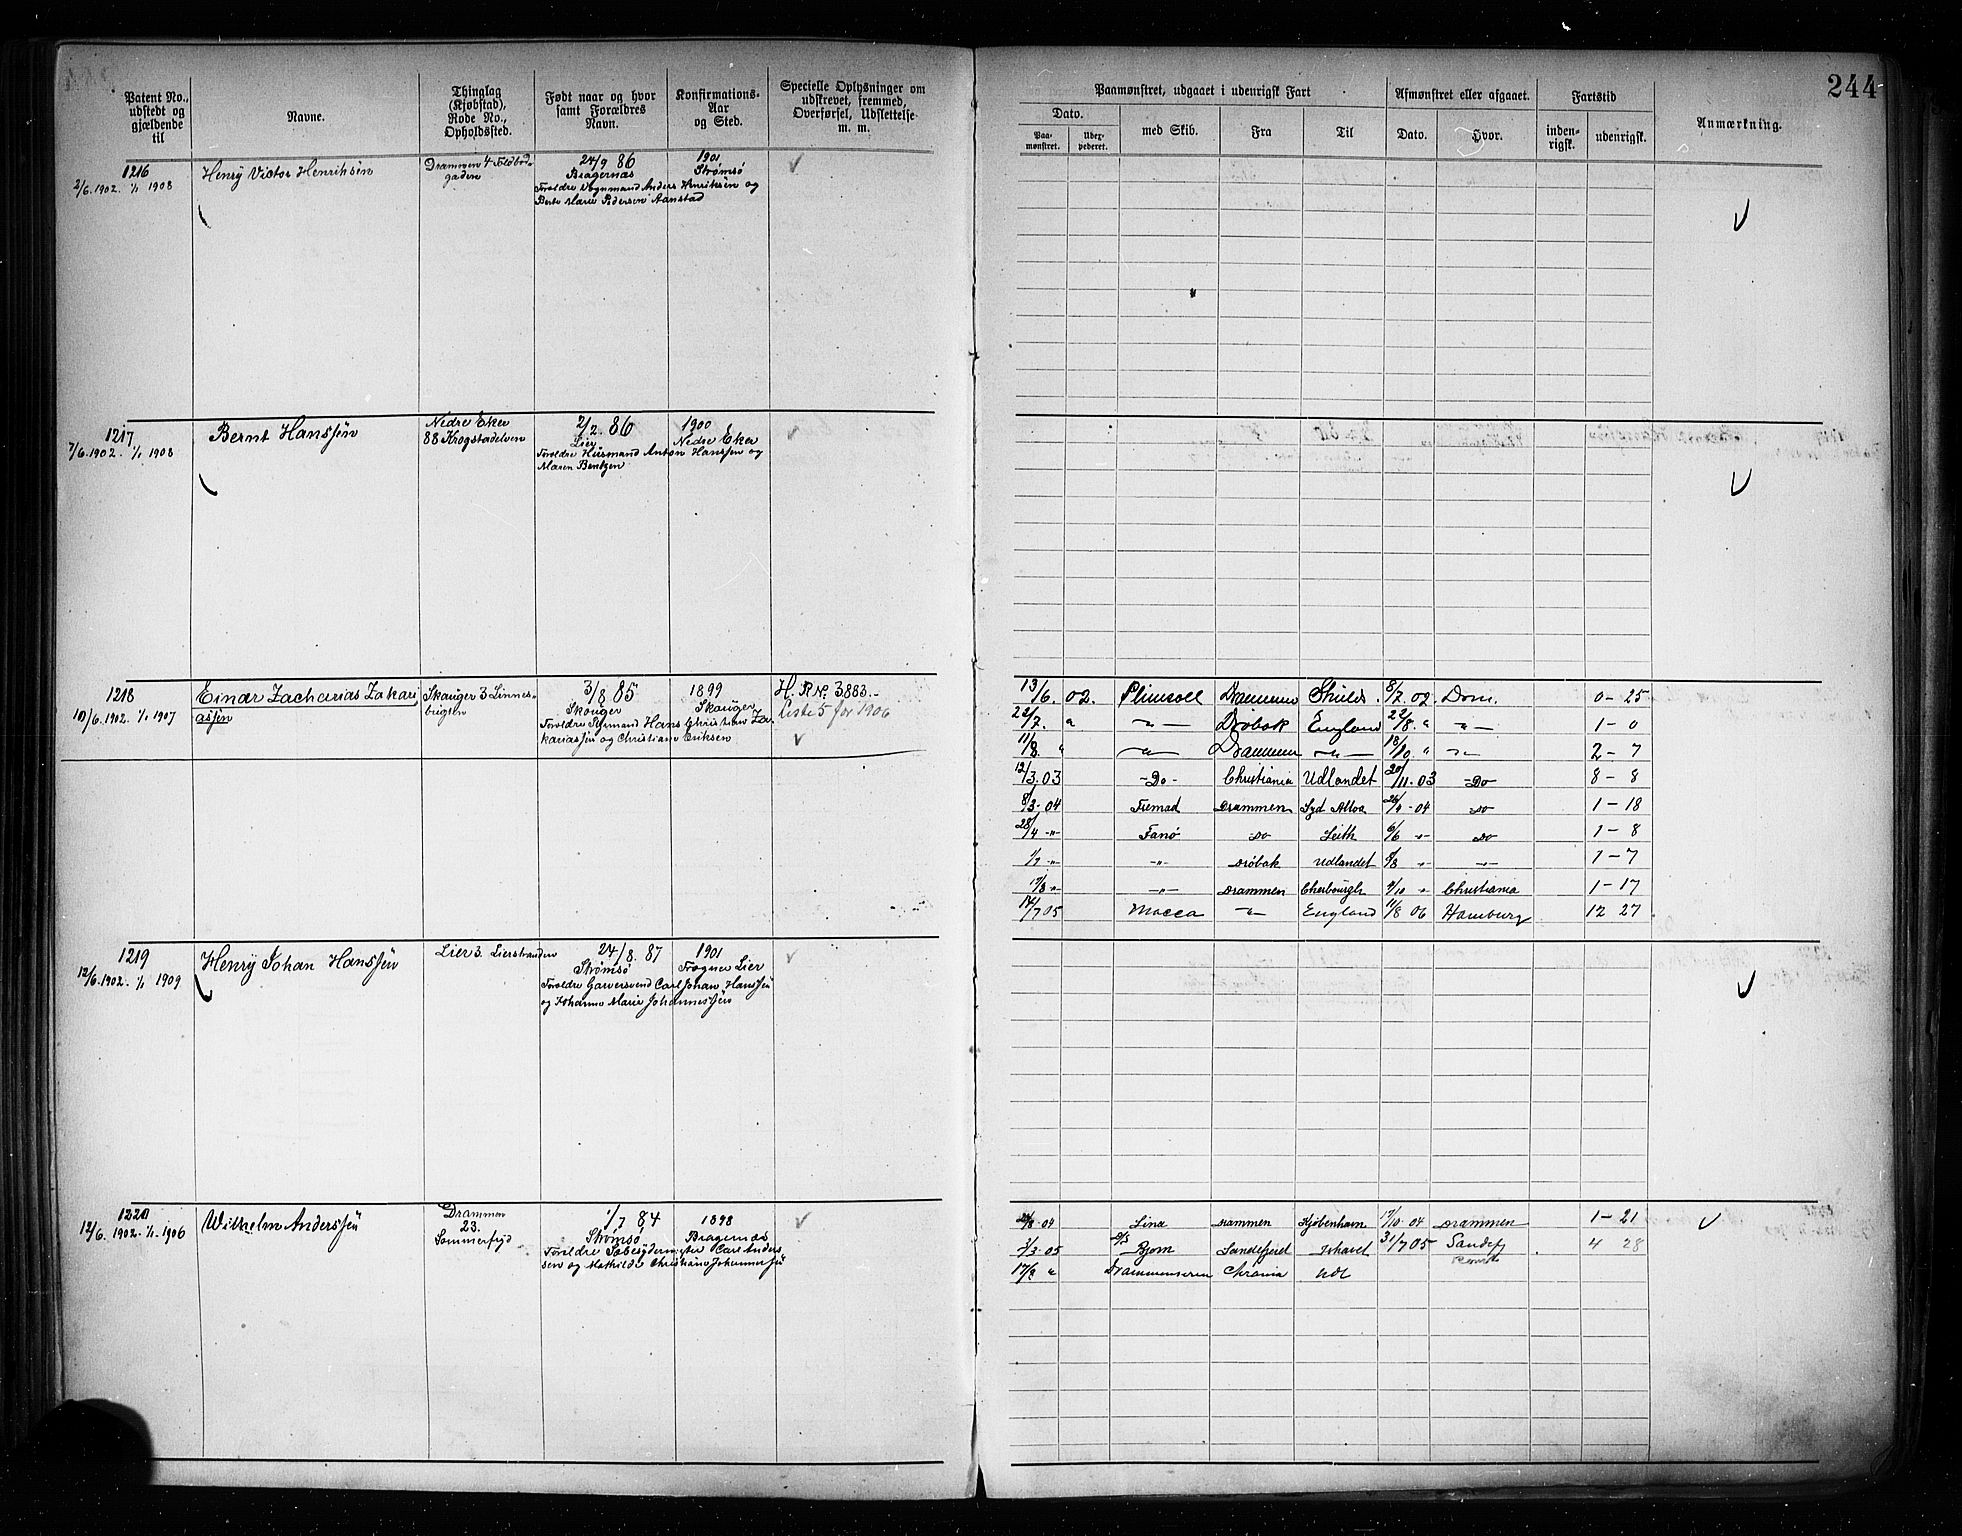 244
Patent No., udstedt og gjældende til
Navne.
Thinglag (Kjøbstad), Rode No., Opholdssted.
Født naar og hvor samt Forældres Navn.
Konfirmations-Aar og Sted.
Specielle Oplysninger om udskrevet, fremmed, Overførsel, Udslettelse m. m.
Paamønstret, udgaaet i udenrigsk Fart
Dato.
Paa-mønstret.
med Skib.
Fra
Til
Afmønstret eller afgaaet.
Dato.
Hvor.
Fartstid
inden-rigsk.
udenrigsk.
Anmærkning.
1216
2/6.1902. 1/1 1908
Henry Victor Henriksen
Drammen 4
gaden
24/9 86
Bragernæs
1901
Strømsø
Forældre Vognmand Anders Henriksen og
Berte Marie Pedersen Aanstad
1217
7/6.1902. 1/1 1908
Bernt Hanssen
Nedre Eker
88 Krogstadelven
2/2. 86
Lier
1900
Nedre Eker
Forældre Husmand Anton Hanssen og
Maren Bentzen
1218
10/6.1902. 1/1 1907
Einar Zacharias Zakari
assen
Skauger 3 Linnes-
3/8 85
Skauger
1899
Skauger
Forældre Sømand Hans Christian Za-
kariassen og Christiane Eriksen
H. R No. 3883.-
Liste 5 for 1906
13/6. 02. Plimsoll Drammen Shields. 8/7. 02. Dom. 0-25
22/7. " -"- Drøbak England 22/8. " -"- 1-0
11/8. " -"- Drammen -"- 18/10. " -"- 2-7
12/3.03 -Do- Christiania Udlandet 20/11.03 -Do 8-8
8/3-04 Fremad Drammen Syd Alloa -04 Do 1-18
28/4 -"- Fanø Do Leith 6/6 -"- Do 1-8
-"- -"- Drøbak Udlandet -"- -"- 1-7
-"- Drammen Cherbourgh -"- Christiania 1-17
05 Mocca -"- England 11/8 06 Hamburg 12 27
1219
12/6.1902. 1/1 1909
Henry Johan Hanssen
Lier 3. Lierstranden
24/8. 87
Strømsø
1901
Frogner Lier
Forældre Garversvend Carl Johan Hanssen
og Johanne Marie Johannessen
1220
12/6.1902. 1/1. 1906
Wilhelm Anderssen
Drammen
23.
Sommerfryd
1/7 84
Strømsø
1898
Bragernæs
Forældre Carl Anders
sen og Mathilde Christiane Johannessen
04 Lina Drammen Kjøbenhavn 17/10-04 Drammen 1-21
3/3-05 D/S Bjørn Sandefjord Ishavet 31/7 05 Sandefj 4 28
17/8 " Drammenseren Chrania Udl